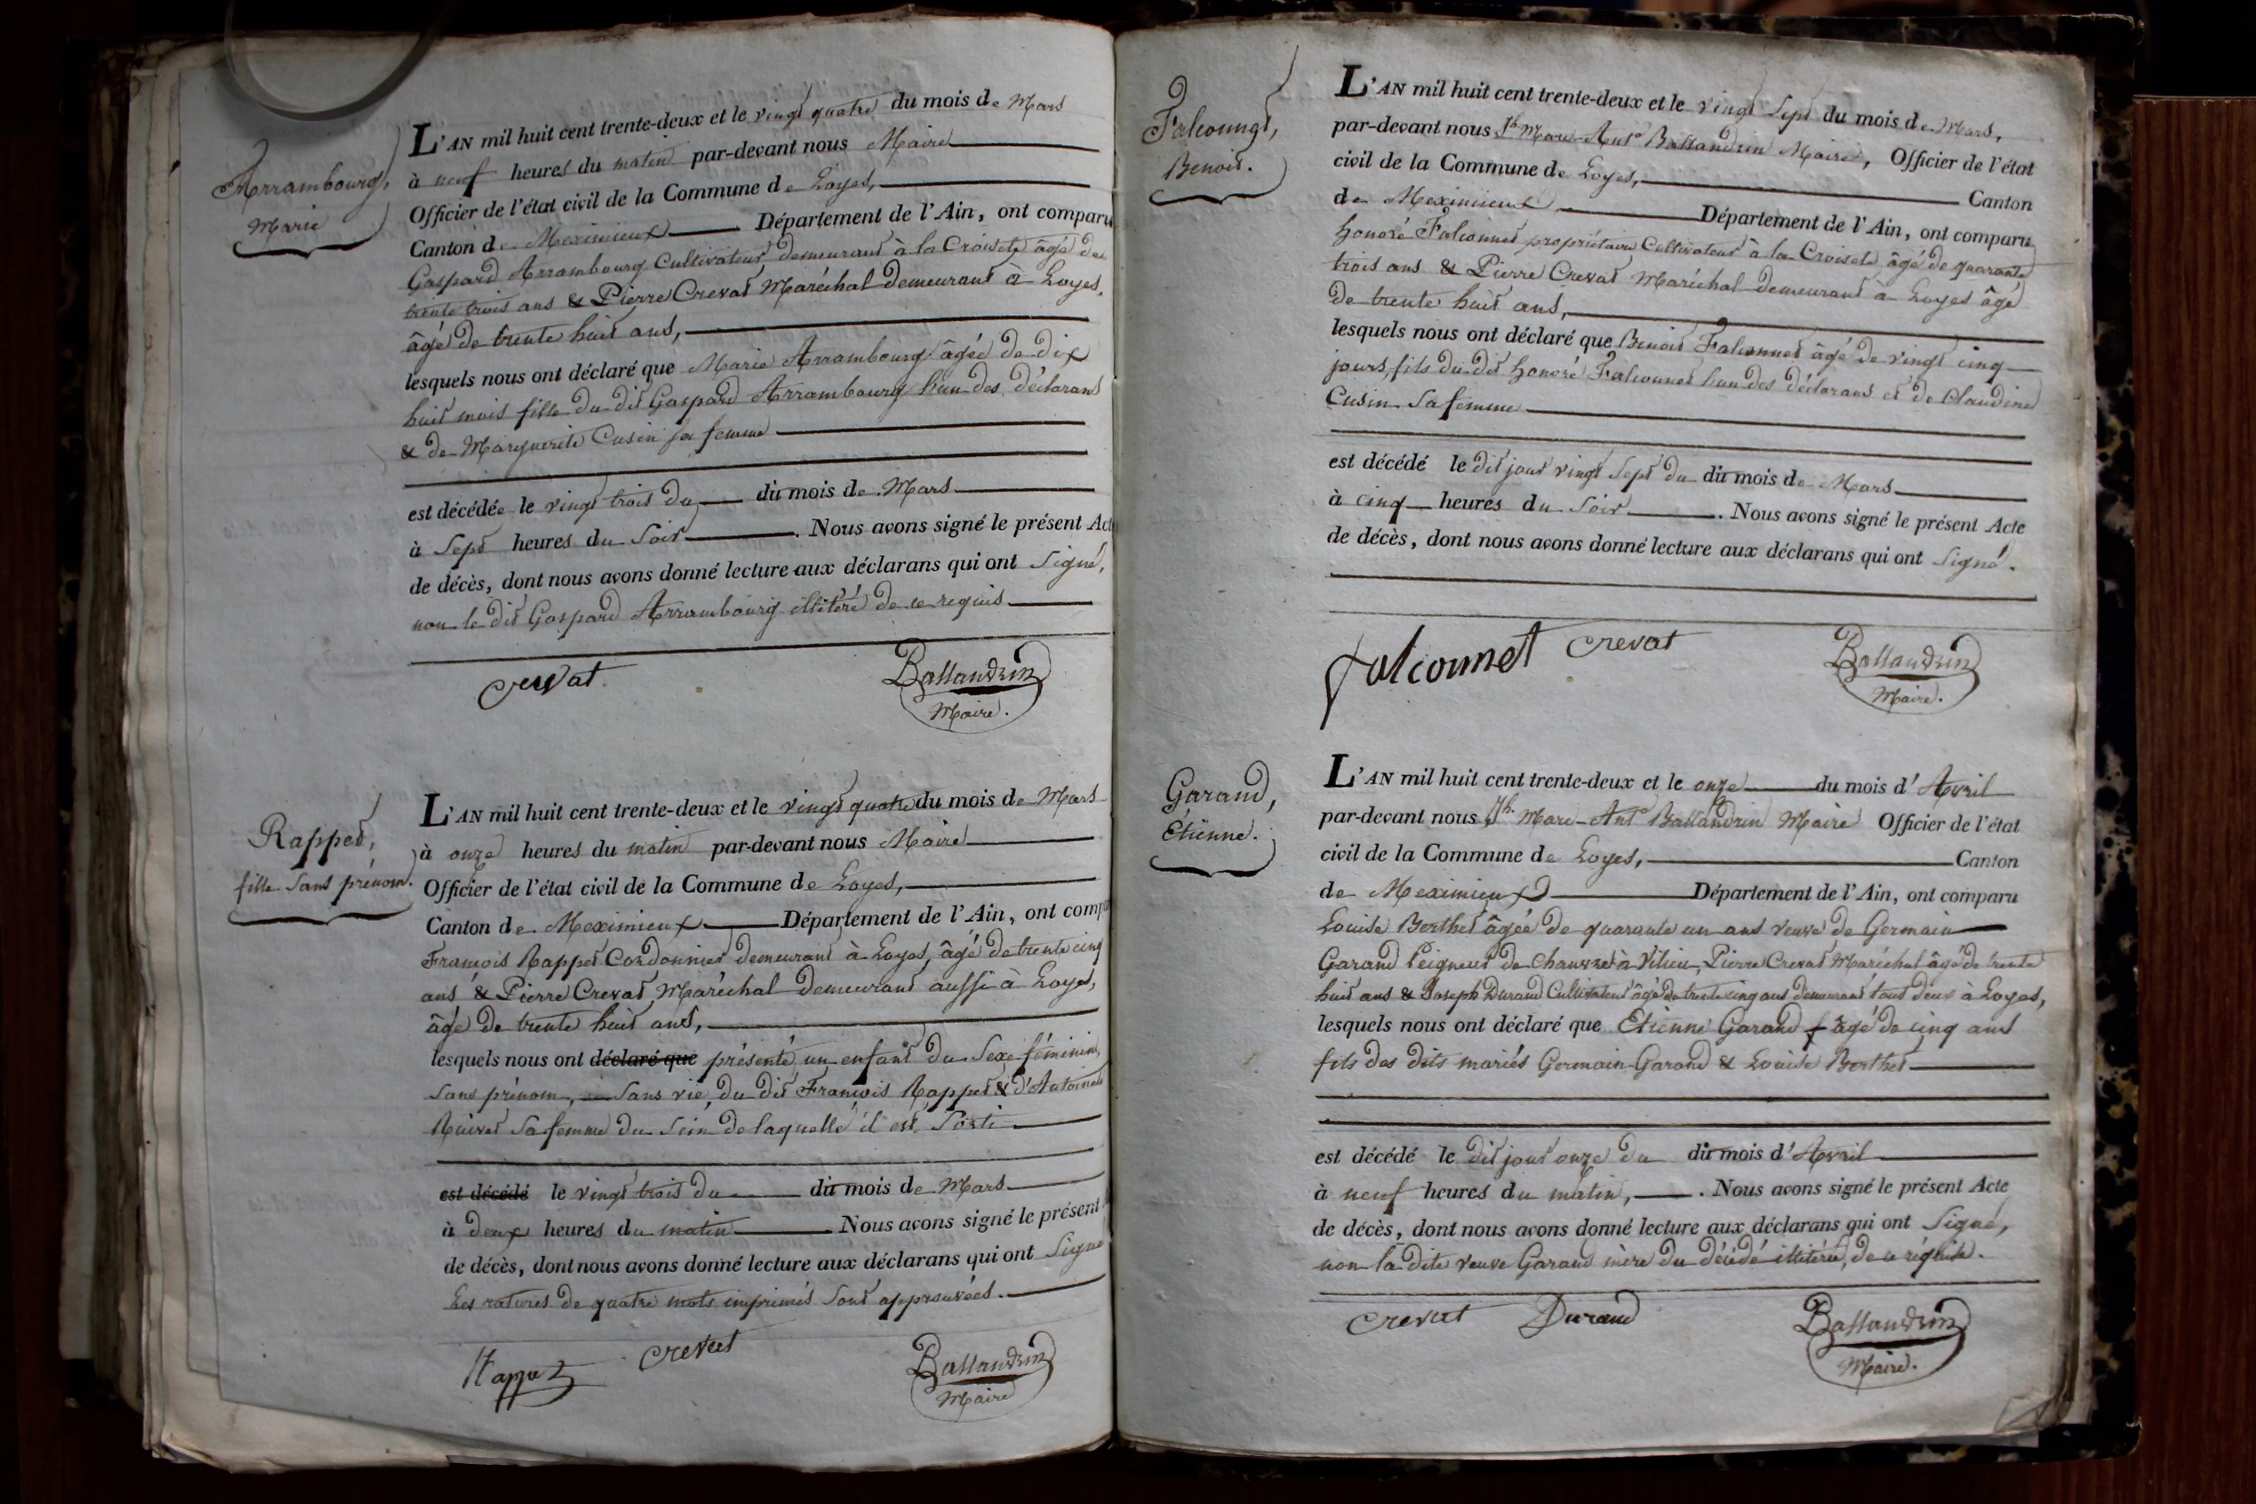 Arrambourg,
Marie
L'AN mil huit cent trente-deux et le vingt quatre du mois de Mars
à neuf heures du matin par-devant nous Maire
Officier de l'état civil de la Commune de Loyes,
Canton de Meximieux Département de l'Ain, ont comparu
Gaspard Arrambourg Cultivateur demeurant à la Croisete âgé de
trente trois ans & Pierre Crevat Maréchal demeurant à Loyes,
âgé de trente huit ans,
lesquels nous ont déclaré que Marie Arrambourg âgée de dix
huit mois fille du dit Gaspard Arrambourg l'un des déclarans
& de Marguerite Cusin sa femme
est décédée le vingt trois du dit mois de Mars
à Sept heures du Soir. Nous avons signé le présent Acte
de décès, dont nous avons donné lecture aux déclarans qui ont Signé,
non le dit Gaspard Arrambourg illitéré de ce requis
Crevat
Ballandrin
Maire.
Rappet,
fille Sans prénom.
L'AN mil huit cent trente-deux et le vingt quatre du mois de Mars
à onze heures du matin par-devant nous Maire
Officier de l'état civil de la Commune de Loyes,
Canton de Meximieux Département de l'Ain, ont compa
François Rappet Cordonnier demeurant à Loyes, âgé de trente cinq
ans & Pierre Crevat Maréchal demeurant aussi à Loyes,
âgé de trente huit ans,
lesquels nous ont déclaré que présenté un enfant du Sexe féminin,
Sans prénom, Sans vie, du dit François Rappet & d'Antoinete
Ruivet Sa femme du Sein de laquelle il est Sorti
est décédé le vingt trois du dit mois de Mars
à deux heures du matin Nous avons signé le présent
de décès, dont nous avons donné lecture aux déclarans qui ont Signé
Les ratures de quatre mots imprimés Sont approuvées.
Rappet
Crevat
Ballandrin
Maire
Falconnet,
Benoit.
L'AN mil huit cent trente-deux et le vingt Sept du mois de Mars,
par-devant nous Jh Marc-Ant.e Ballandrin Maire, Officier de l'état
civil de la Commune de Loyes, Canton
de Meximieux Département de l'Ain, ont comparu
Honoré Falconnet propriétaire Cultivateur à la Croisete âgé de quarante
trois ans & Pierre Crevat Maréchal demeurant à Loyes âgé
de trente huit ans,
lesquels nous ont déclaré que Benoit Falconnet âgé de vingt cinq
jours, fils du dit Honoré Falconnet l'un des déclarans et de Claudine
Cusin Sa femme
est décédé le dit jour vingt Sept du dit mois de Mars
à cinq heures du Soir. Nous avons signé le présent Acte
de décès, dont nous avons donné lecture aux déclarans qui ont Signé.
falconnet
Crevat
Ballandrin
Maire.
Garand,
Etienne.
L'AN mil huit cent trente-deux et le onze du mois d'Avril
par-devant nous Jh. Marc-Ant.e Ballandrin Maire Officier de l'état
civil de la Commune de Loyes, Canton
de Meximieux Département de l'Ain, ont comparu
Louise Berthet âgée de quarante un ans veuve de Germain
Garand Peigneur de Chanvre à Vilieu, Pierre Crevat Maréchal âgé de trente
huit ans & Joseph Durand Cultivateur âgé de trente cinq ans demeurant tous deux à Loyes,
lesquels nous ont déclaré que Etienne Garand âgé de cinq ans
fils des dits mariés Germain Garand & Louise Berthet
est décédé le dit jour onze du dit mois d'Avril
à neuf heures du matin,. Nous avons signé le présent Acte
de décès, dont nous avons donné lecture aux déclarans qui ont Signé,
non la dite veuve Garand mère du décédé illitérée, de ce requise.
Crevat
Durand
Ballandrin
Maire.